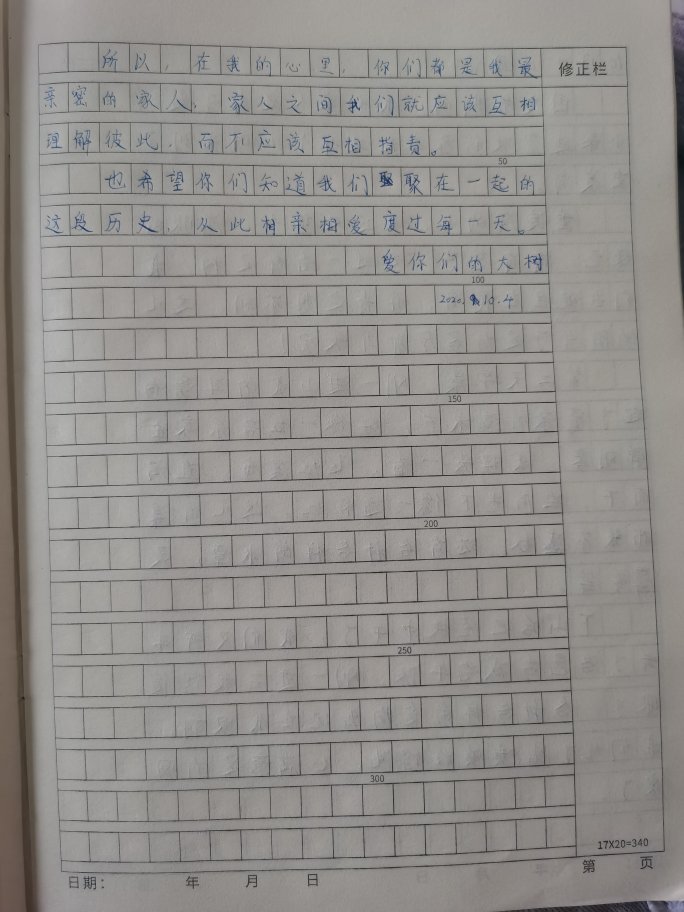 所以，在我的心里，你们都是我最
修正栏
亲密的家人，家人之间我们就应该互相
理解彼此，而不应该互相指责。
50
也希望你们知道我们聚在一起的
这段历史，从此相亲相爱度过每一天。
爱你们的大树
100
2020.10.4
150
200
250
300
17X20=340
日期： 年 月 日
第 页